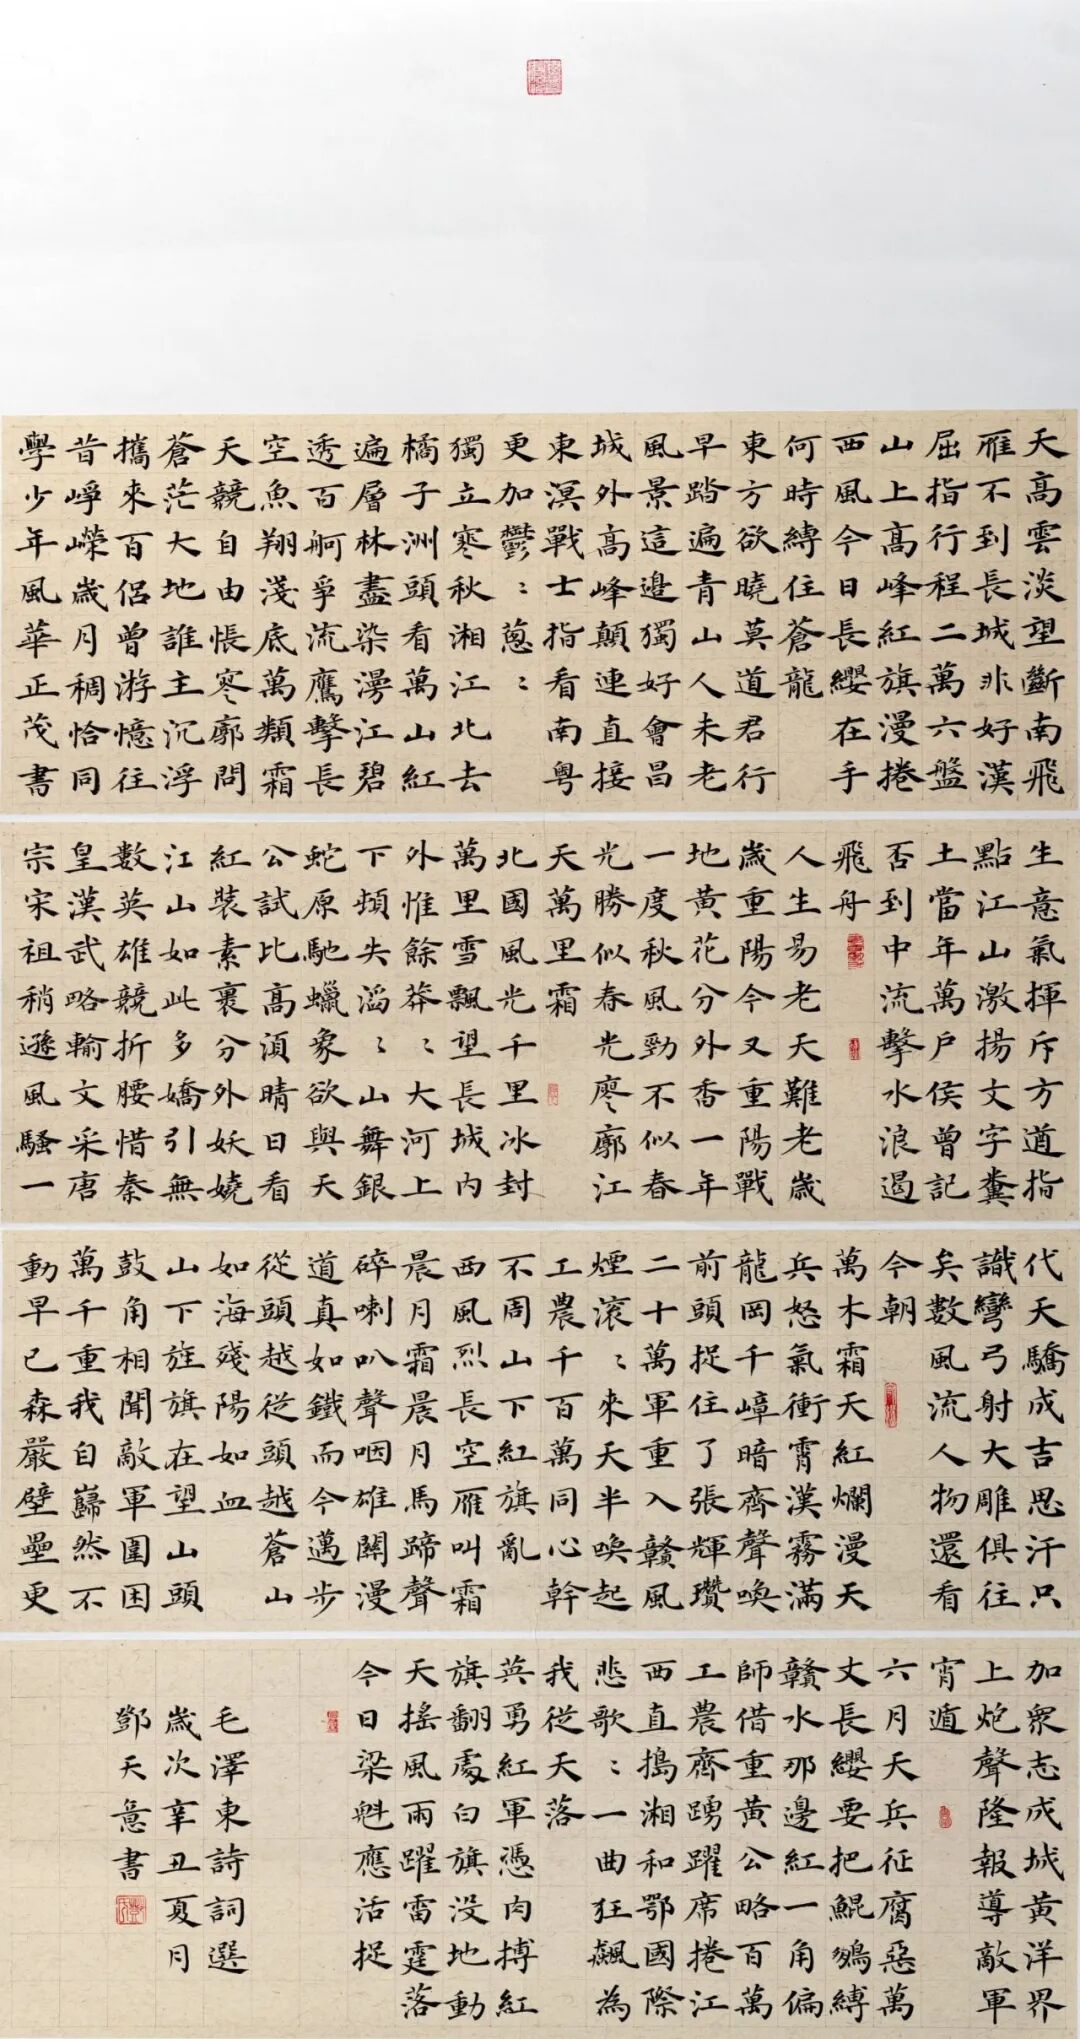 天高雲淡望斷南飛
雁不到長城非好漢
屈指行程二萬六盤
山上高峰紅旗漫捲
西風今日長纓在手
何時縛住蒼龍
東方欲曉莫道君行
早踏遍青山人未老
風景這邊獨好會昌
城外高峰顛連直接
東溟戰士指看南粵
更加鬱〻蔥〻
獨立寒秋湘江北去
橘子洲頭看萬山紅
遍層林盡染漫江碧
透百舸爭流鷹擊長
空魚翔淺底萬類霜
天競自由悵寥廓問
蒼茫大地誰主沉浮
攜來百侶曾游憶往
昔崢嶸歲月稠恰同
學少年風華正茂書
生意氣揮斥方遒指
點江山激揚文字糞
土當年萬戶侯曾記
否到中流擊水浪遏
飛舟
人生易老天難老歲
歲重陽今又重陽戰
地黃花分外香一年
一度秋風勁不似春
光勝似春光廖廓江
天萬里霜
北國風光千里冰封
萬里雪飄望長城內
外惟餘莽〻大河上
下頓失滔〻山舞銀
蛇原馳蠟象欲與天
公試比高須晴日看
紅裝素裹分外妖嬈
江山如此多嬌引無
數英雄競折腰惜秦
皇漢武略輸文采唐
宗宋祖稍遜風騷一
代天驕成吉思汗只
識彎弓射大雕俱往
矣數風流人物還看
今朝
萬木霜天紅爛漫天
兵怒氣衝霄漢霧滿
龍岡千嶂暗齊聲喚
前頭捉住了張輝瓚
二十萬軍重入贛風
煙滾〻來天半喚起
工農千百萬同心幹
不周山下紅旗亂
西風烈長空雁叫霜
晨月霜晨月馬蹄聲
碎喇叭聲咽雄關漫
道真如鐵而今邁步
從頭越從頭越蒼山
如海殘陽如血
山下旌旗在望山頭
鼓角相聞敵軍圍困
萬千重我自巋然不
動早已森嚴壁壘更
加眾志成城黃洋界
上炮聲隆報導敵軍
宵遁
六月天兵征腐惡萬
丈長纓要把鯤鵬縛
贛水那邊紅一角偏
師借重黃公略百萬
工農齊踴躍席捲江
西直搗湘和鄂國際
悲歌〻一曲狂飆為
我從天落
英勇紅軍憑肉搏紅
旗翻處白旗沒地動
天搖風雨躍雷霆落
今日梁魁應活捉
毛澤東詩詞選
歲次辛丑夏月
鄧天意書